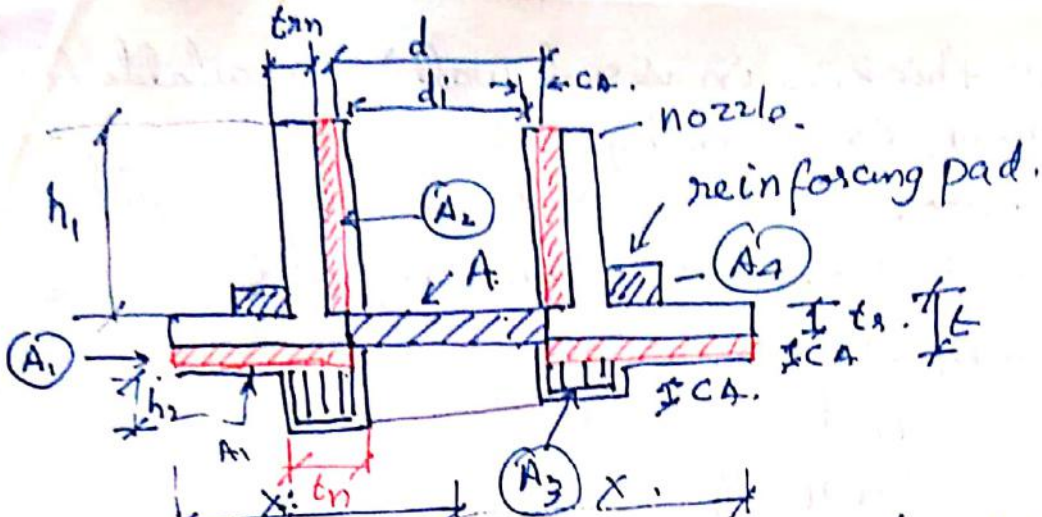 trn
d
di
CA.
nozzle.
reinforcing pad.
h1
A2
A.
A4
tr.
t
CA
A1
h2
A1
CA.
tn
A3
X
X.